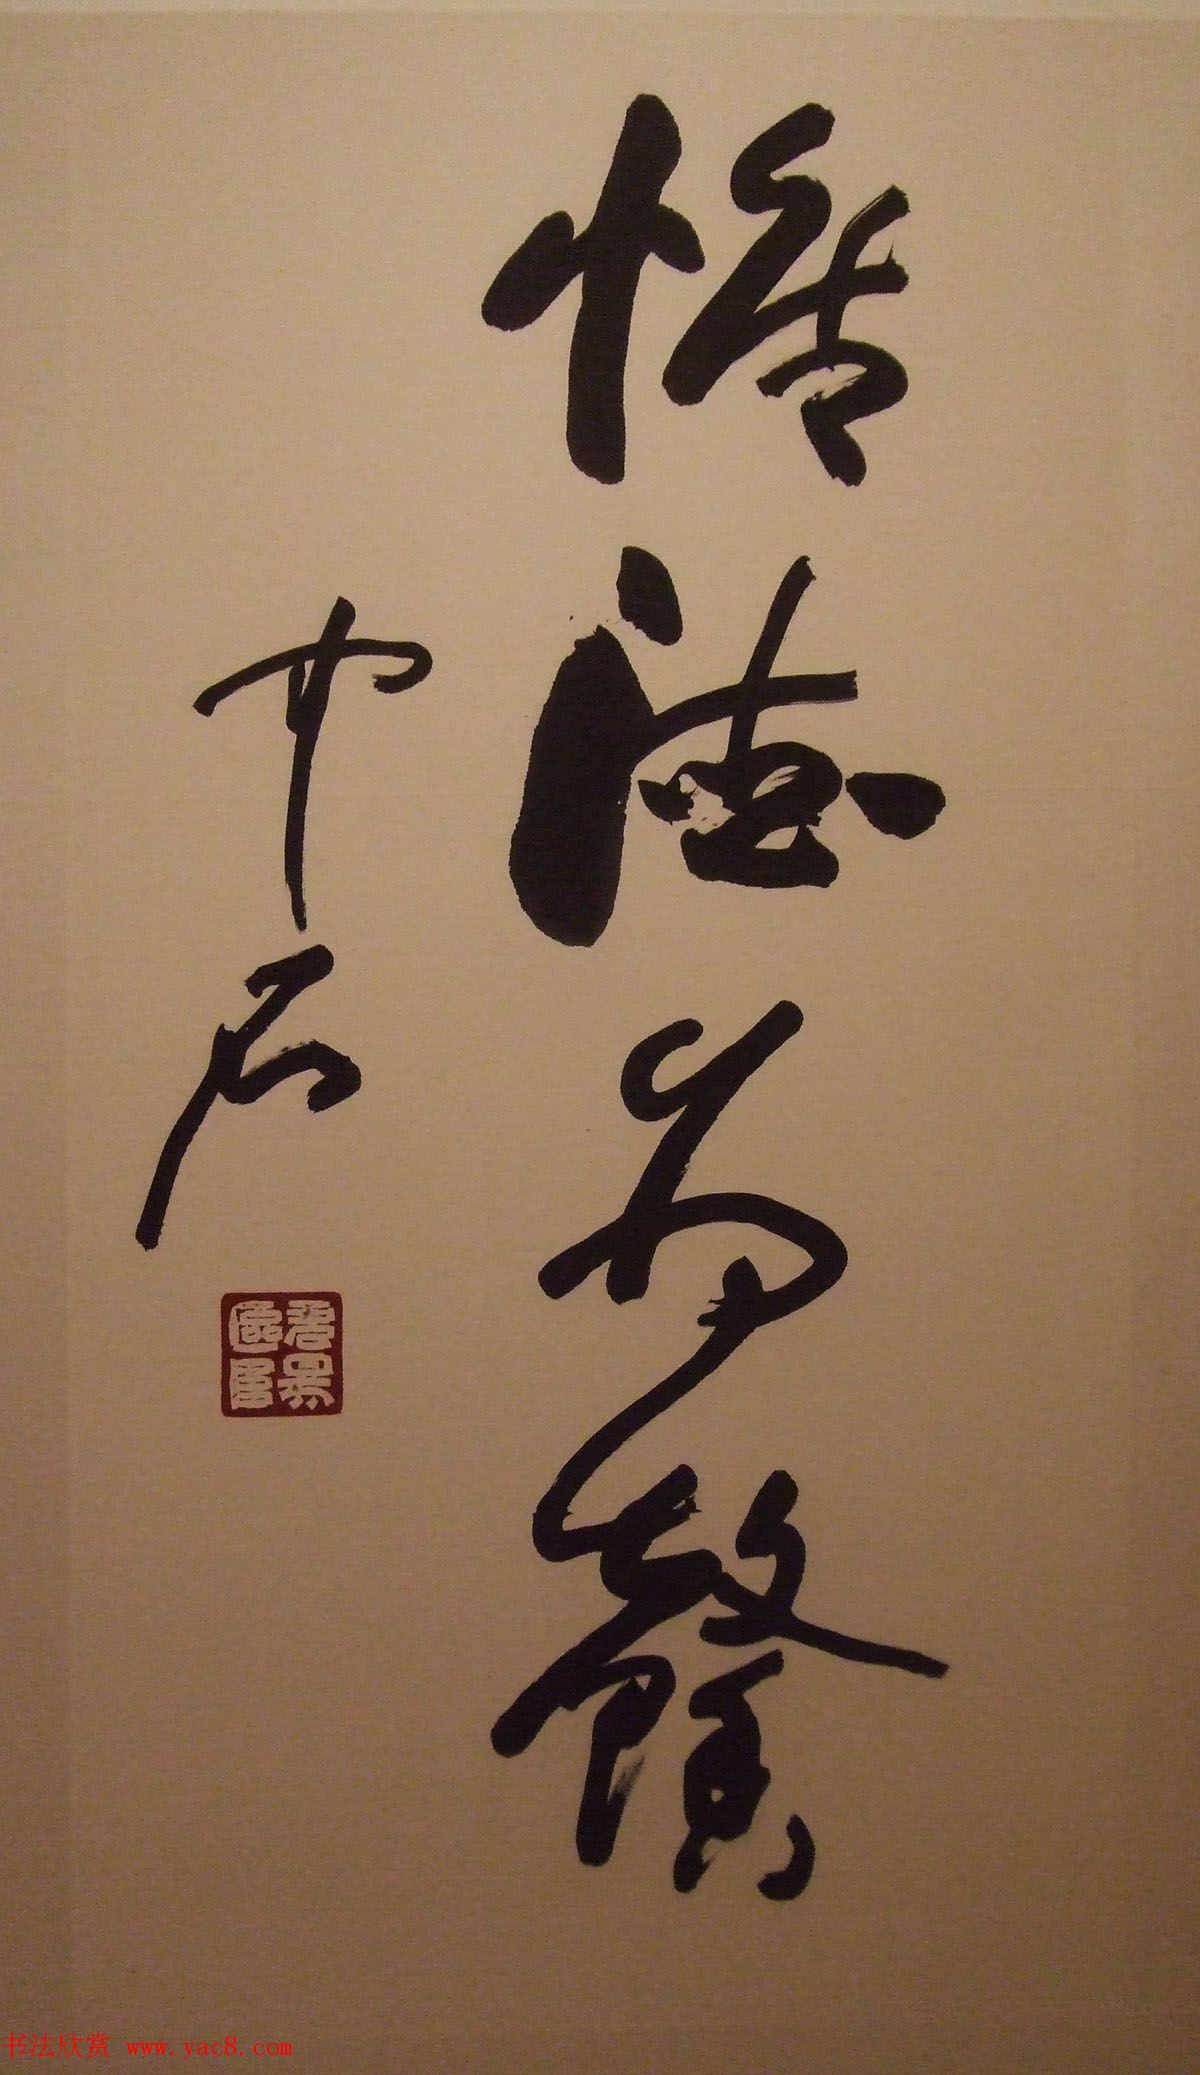 惟德為馨
中石
书法欣赏 www.yac8.com